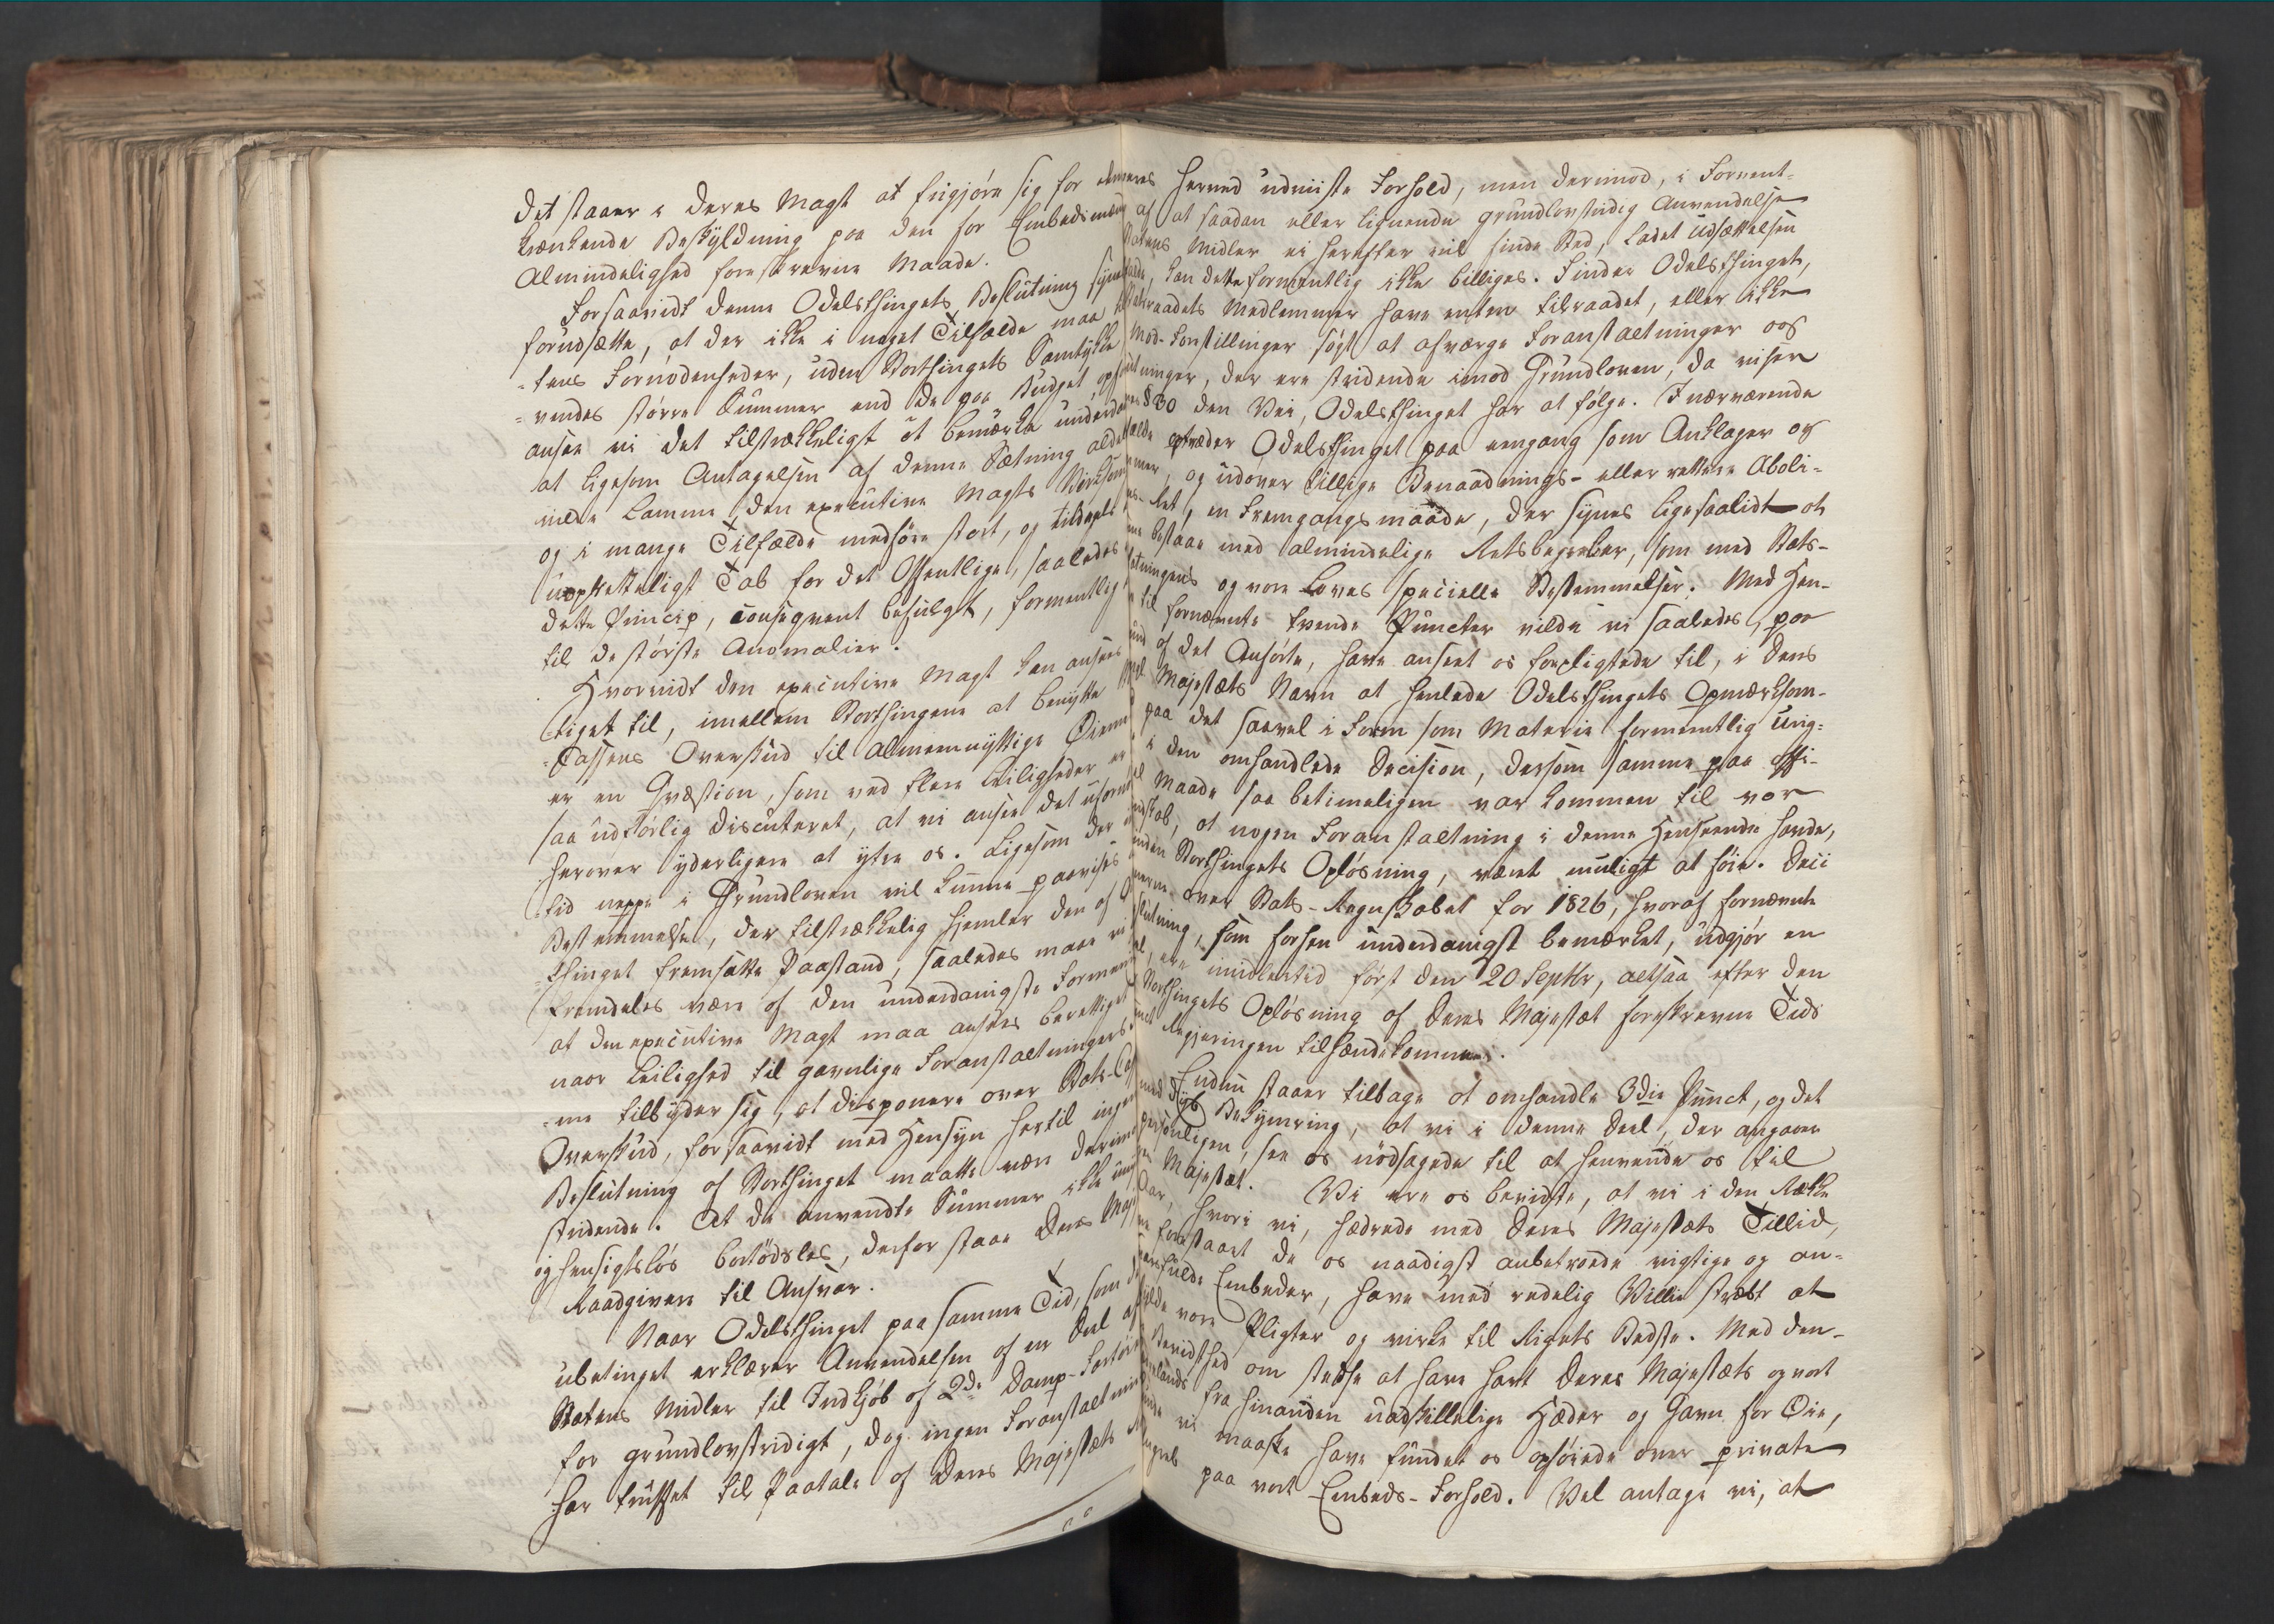 det staaer i deres Magt at frigjøre sig for denne
krænkende Beskyldning paa den for Embedsmænd
Almindelighed foreskrevne Maade.
Forsaavidt denne Odelsthingets Beslutning synes
forudsætte, at der ikke i noget Tilfælde maa til
-tens Fornødenheder, uden Storthingets Samtykke
-vendes større Summer end de paa Budget opførte
ansee vi det tilstrækkeligt at bemærke underd
at ligesom Antagelsen af denne Sætning aldeles
vilde lamme den executive Magts Virksom
og i mange Tilfælde medføre stort, og tildeels
uopretteligt Tab for det Offentlige, saaledes
dette Princip, conseqvent befulgt, formentlig
til de største Anomalier.
Hvorvidt den executive Magt kan ansees
-tiget til, imellem Storthingene at benytte
-Cassens Overskud til almeennyttige Øiem
er en Qvæstion, som ved flere Leiligheder er
saa udførlig discuteret, at vi ansee det ufornø
herover yderligere at yttre os. Ligesom der
-tid neppe i Grundloven vil kunne paavises
Bestemmelse, der tilstrækkelig hjemler den af O
-thinget fremsatte Paastand, saaledes maae vi
fremdeles være af den underdanigste Formen
at den executive Magt maa ansees berettiget
naar Leilighed til gavnlige Foranstaltninger
-me tilbyder sig, at disponere over Stats-Cas
Overskud, forsaavidt med Hensyn hertil ingen
Beslutning af Storthinget maatte være derimod
stridende. At de anvendte Summer ikke unyt
og hensigtsløs bortødsles, derfor staae Deres Maj
Raadgivere til Ansvar.
Naar Odelsthinget paa samme Tid, som det
ubetinget erklærer Anvendelsen af en Deel af
Statens Midler til Indkjøb af 2de Damp-Fartøier
for grundlovstridigt, dog ingen Foranstaltning
har truffet til Paatale af Deres Majestæts
herved udviiste Forhold, men derimod, i Forvent-
af at saadan eller lignende grundlovstridig Anvendelse
Statens Midler ei herefter vil finde Sted, ladet Udsættelsen
falde, kan dette formentlig ikke billiges. Finder Odelsthinget,
Statsraadets Medlemmer have enten tilraadet, eller ikke
Mod-Forestillinger søgt at afværge Foranstaltninger og
Slutninger, der ere stridende imod Grundloven, da viser
§ 30 den Vei, Odelsthinget har at følge. I nærværende
Tilfælde optræder Odelsthinget paa eengang som Anklager og
Dommer, og udøver tillige Benaadnings- eller rettere Aboli-
-Ret, en Fremgangsmaade, der synes ligesaalidt at
bestaae med almindelige Retsbegreber, som med Stats-
-fatningens og vore Loves specielle Bestemmelser. Med Hen-
til fornævnte tvende Puncter vilde vi saaledes, paa
Grund af det Anførte, have anseet os forpligtede til, i Deres
Majestæts Navn at henlede Odelsthingets Opmærksom-
paa det saavel i Form som Materie formentlig Urig-
i den omhandlede Decision, dersom samme paa offi-
Maade saa betimeligen var kommen til vor
Kundskab, at nogen Foranstaltning i denne Henseende havde,
inden Storthingets Opløsning, været muligt at føie. Deci
over Stats-Regnskabet for 1826, hvoraf fornævnte
Beslutning, som forhen underdanigst bemærket, udgjør en
Deel, ere imidlertid først den 20 Septbr, altsaa efter den
Storthingets Opløsning af Deres Majestæt foreskrevne Tids
Regjeringen tilhændekommen.
Endnu staaer tilbage at omhandle 3die Punct, og det
med dyb Bekymring, at vi i denne Deel, der angaaer
personligen, see os nødsagede til at henvende os til
Majestæt. Vi ere os bevidste, at vi i den Række
Aar, hvori vi, hædrede med Deres Majestæts Tillid,
forestaaet de os naadigst anbetroede vigtige og an-
-svarsfulde Embeder, have med redelig Villie stræbt at
opfylde vore Pligter og virke til Rigets Bedste. Med den-
Bevidsthed om stedse at have havt Deres Majestæts og vort
fra hinanden uadskillelige Hæder og Gavn for Øie,
kunde vi maaske have fundet os ophøiede over private
Angreb paa vort Embeds-Forhold. Vel antage vi, at